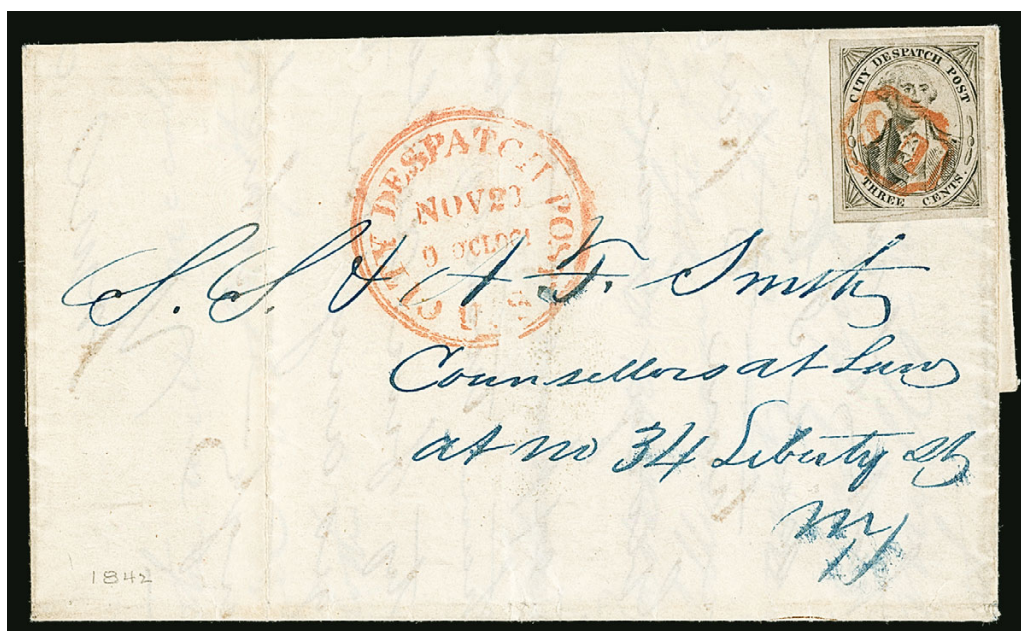 CITY DESPATCH POST
THREE CENTS.
CITY DESPATCH POST
NOV
O'CLOCK
U.S.
S. S. & A F. Smith
Counsellors at Law
at no 34 Liberty St
NY
1842